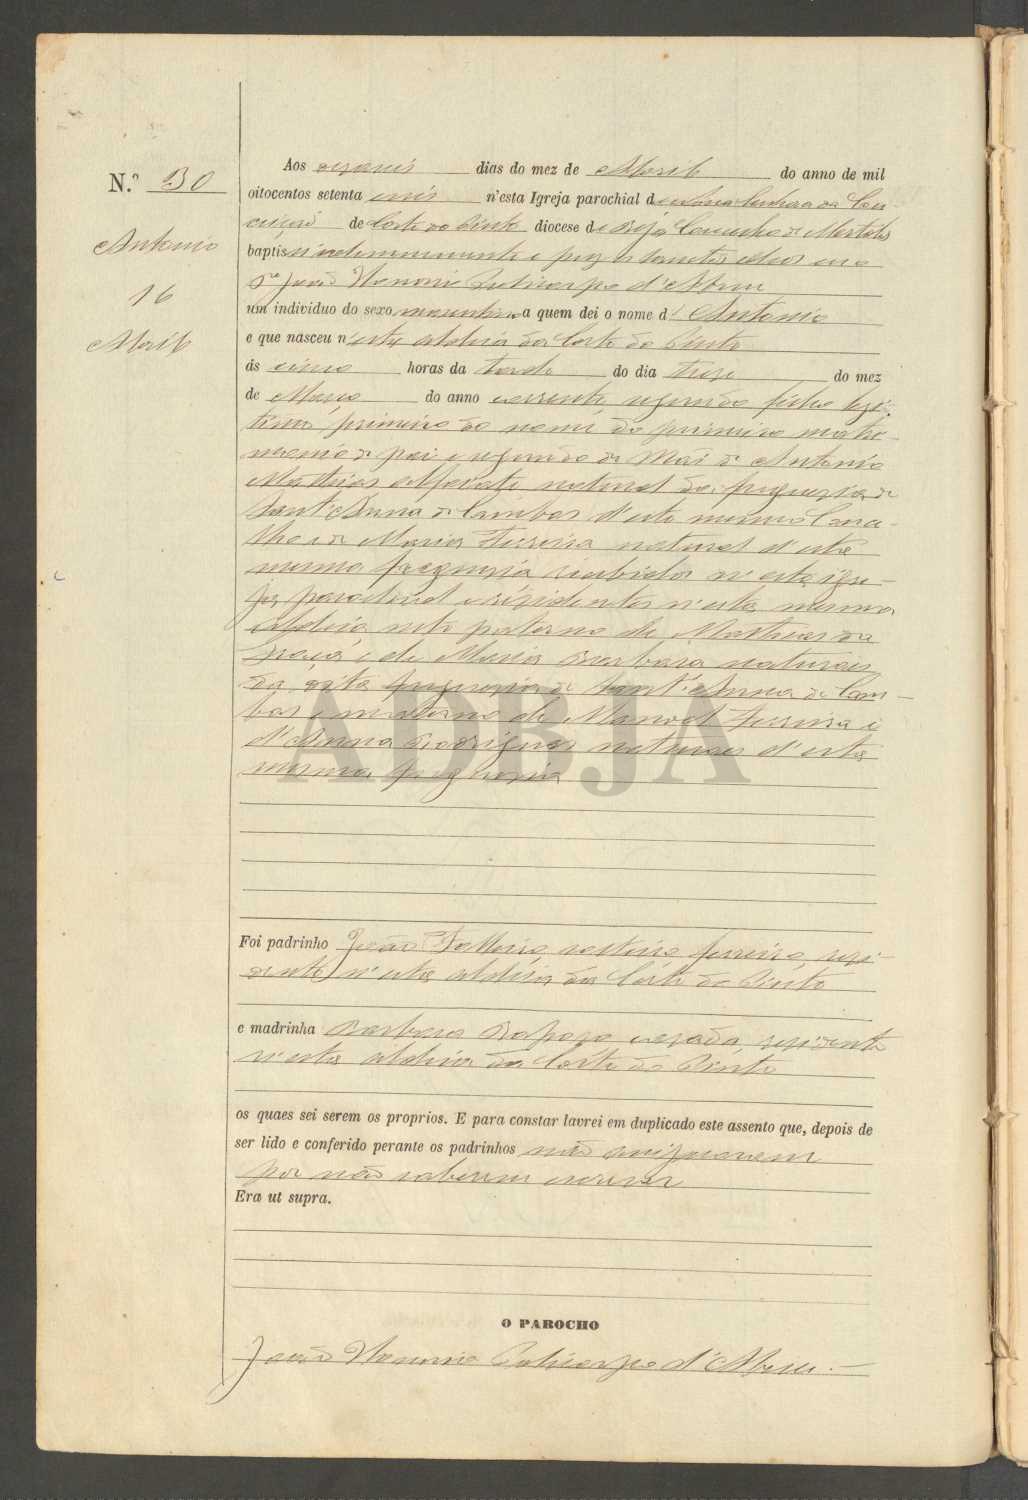 N.º 30
Antonio
16
Abril
Aos dezaseis dias do mez de Abril do anno de mil
oitocentos setenta e seis n'esta Igreja parochial de Nossa Senhora da Con-
ceição de Corte do Pinto diocese de Beja Concelho de Mertola
baptisei solemnemente e puz os Santos Oleos eu o
Pe João Honorio Policarpo d'Abreu
um individuo do sexo masculino a quem dei o nome d' Antonio
e que nasceu n'esta aldeia da Corte do Pinto
ás cinco horas da tarde do dia treze do mez
de Março do anno corrente, segundo filho legi-
timo, primeiro do nome do primeiro matri-
monio de pai e segundo de Mai de Antonio
Mathias natural da freguezia de
Sant'Anna de Cambas d'este mesmo Conce-
lho e de Maria Ferreira natural d'esta
mesma freguezia recebidos n'esta igre-
ja parochial e residentes n'esta mesma
aldeia neto paterno de Mathias da
Graça e de Maria Barbara naturais
da dita freguezia de Sant'Anna de Cam-
bas e materno de Manoel Ferreira e
d'Anna Rodrigues naturais d'esta
mesma freguezia
Foi padrinho João solteiro ferreiro, resi-
dente n'esta aldeia da Corte do Pinto
e madrinha Barbara Raposo casada, residente
n'esta aldeia da Corte do Pinto
os quaes sei serem os proprios. E para constar lavrei em duplicado este assento que, depois de
ser lido e conferido perante os padrinhos não assignarem
por não saberem escrever
Era ut supra.
O PAROCHO
João Honorio Policarpo d'Abreu.
ADBJA